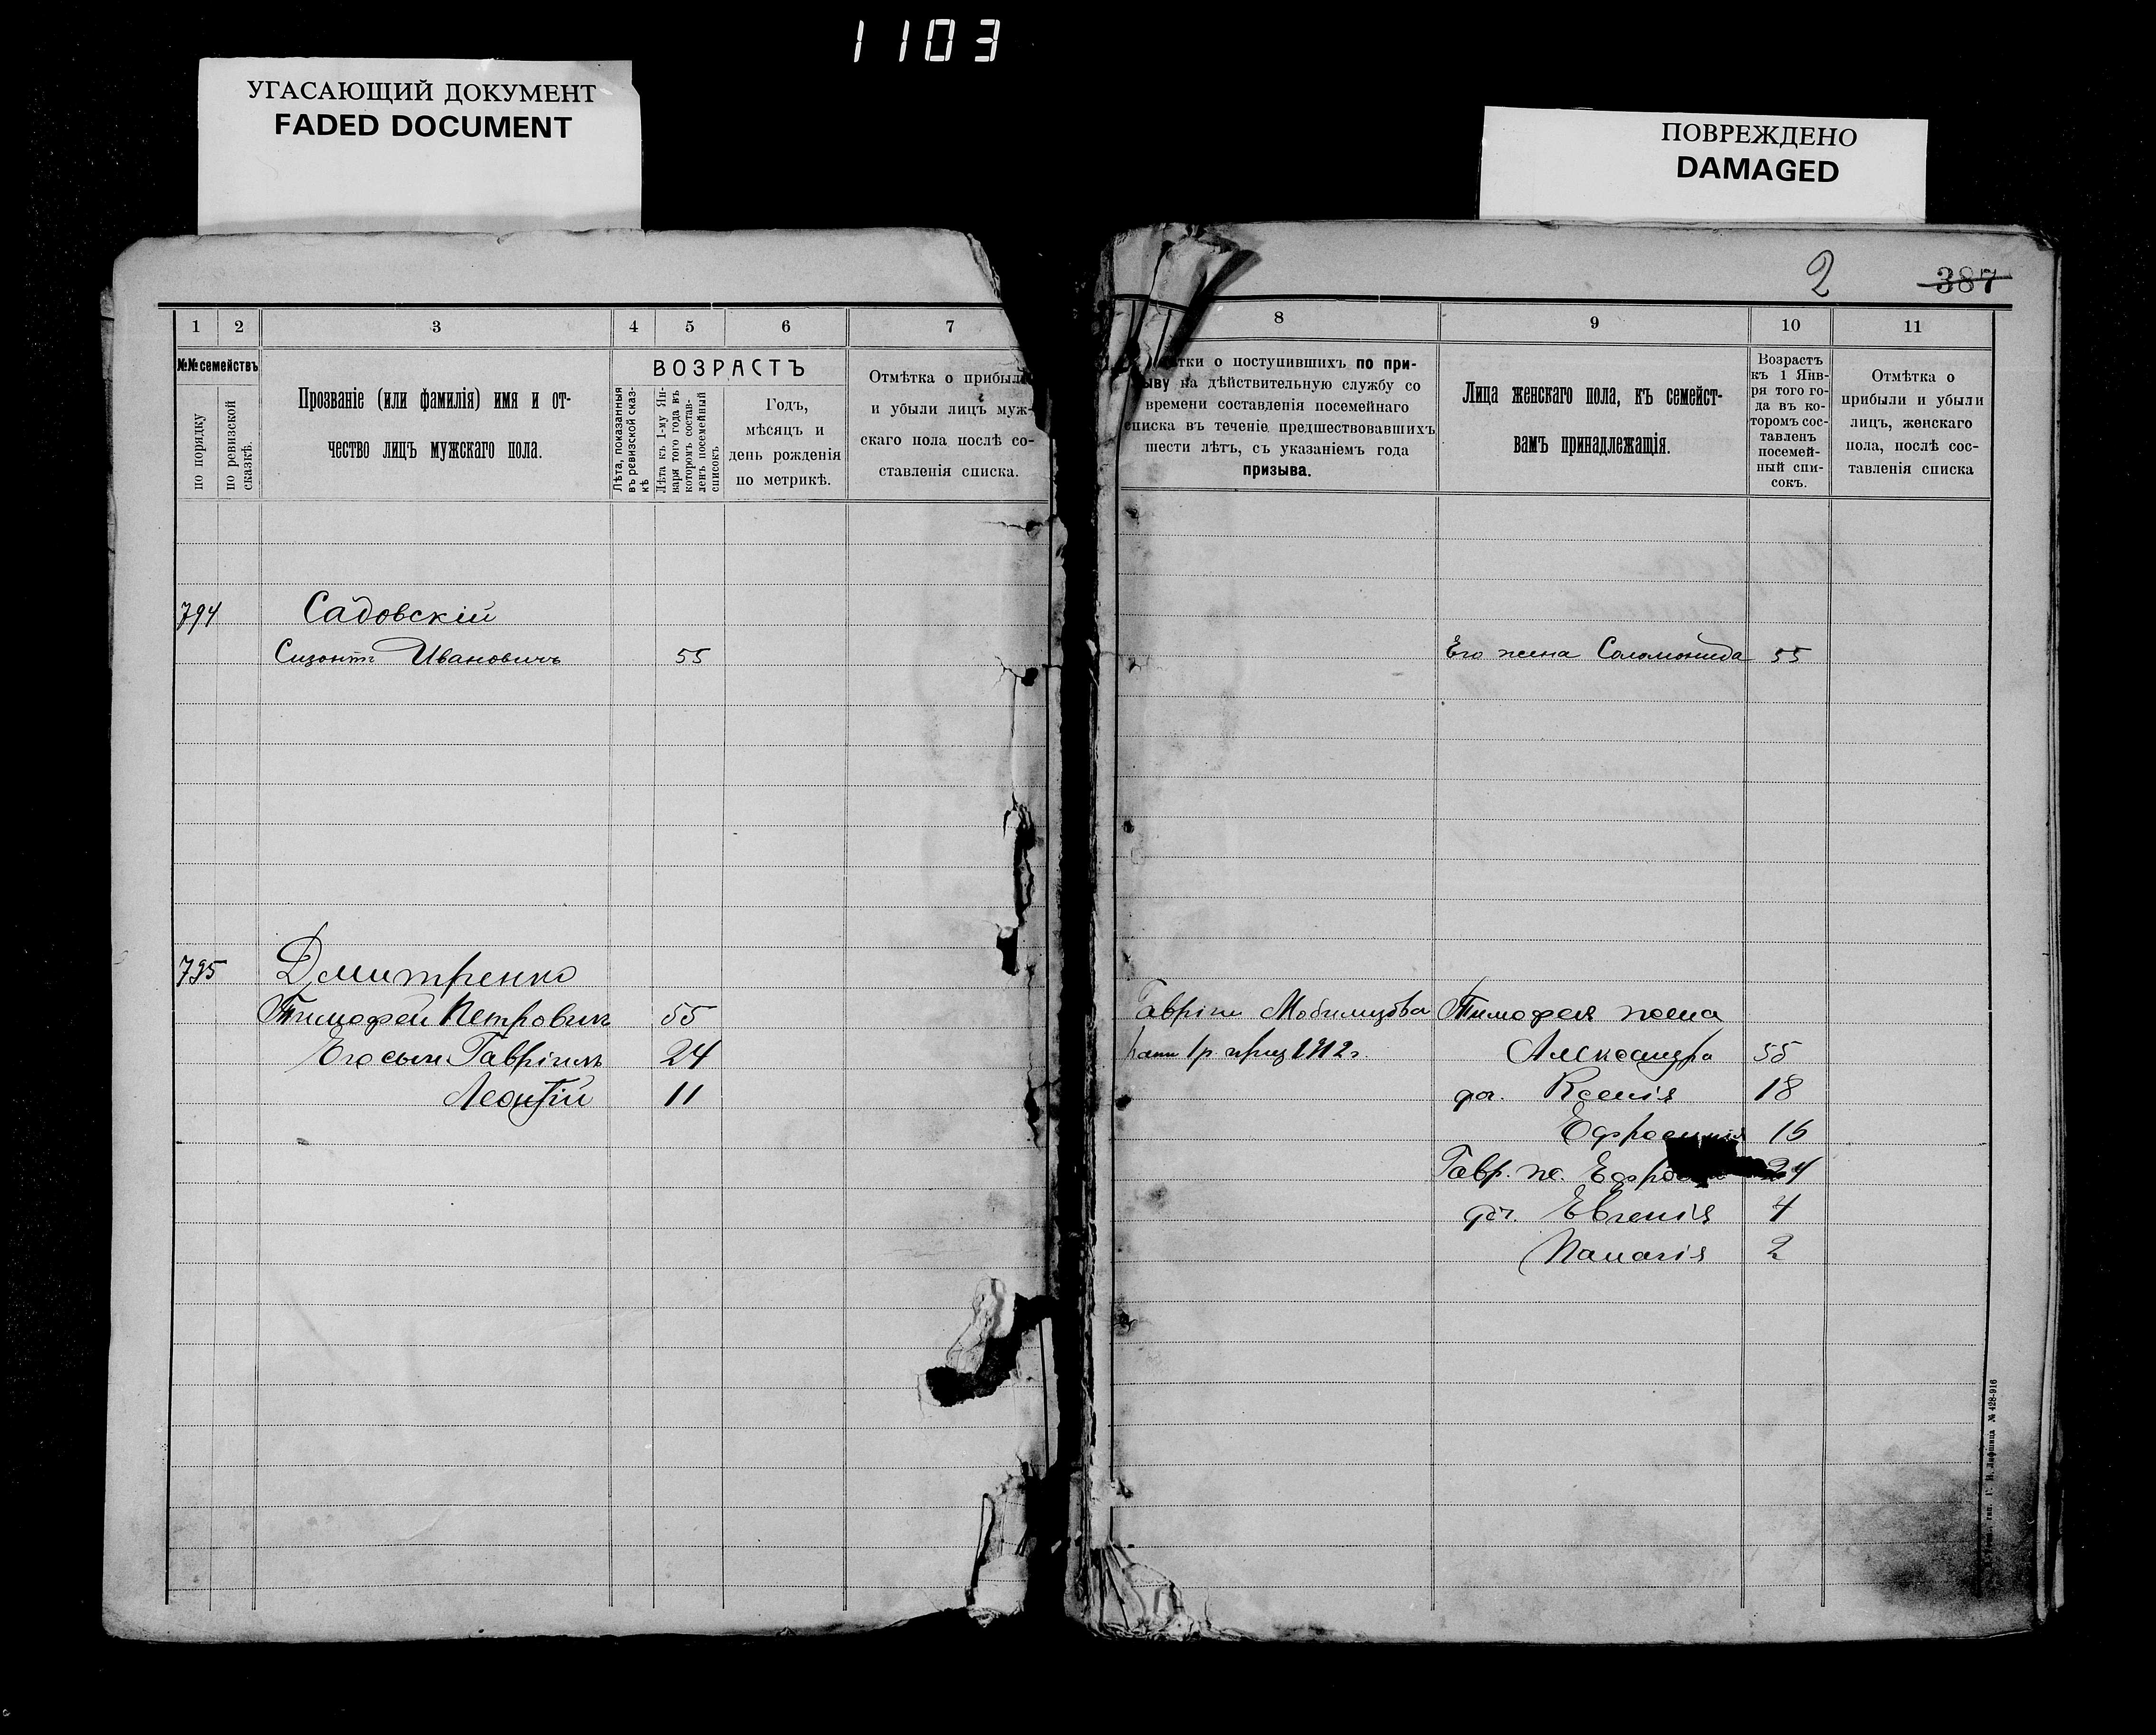 1103
УГАСАЮЩИЙ ДОКУМЕНТ
FADED DOCUMENT
ПОВРЕЖДЕНО
DAMAGED
2 387
1 2 3 4 5 6 7
№№ семействъ
по порядку
по ревизской сказкѣ.
Прозваніе (или фамилія) имя и от-
чество лицъ мужскаго пола.
ВОЗРАСТЪ
Лѣта, показанныя
въ ревизской сказ-
кѣ
Лѣта къ 1-му Ян-
варя того года въ
которомъ состав-
ленъ посемейный
списокъ
Годъ,
мѣсяцъ и
день рожденія
по метрикѣ.
Отмѣтка о прибыли
и убыли лицъ муж-
скаго пола послѣ со-
ставленія списка.
794 Садовскій
Сизонтъ Ивановичъ 55
795 Дмитренко
Тимофей Петровичъ 55
Его сын Гавріилъ 24
Леонтій 11
8 9 10 11
тки о поступившихъ по при-
ыву на дѣйствительную службу со
времени составленія посемейнаго
списка въ теченіе предшествовавшихъ
шести лѣтъ, съ указаніемъ года
призыва.
Лица женскаго пола, къ семейст-
вамъ принадлежащія.
Возрастъ
къ 1 Янв-
ря того го-
да въ ко-
торомъ сос-
тавленъ
посемей-
ный спи-
сокъ.
Отмѣтка о
прибыли и убыли
лицъ, женскаго
пола, послѣ сос-
тавленія списка
Его жена Соломонида 55
Гавріил Мобилизова Тимофея жена
1 р. приз 1912 г. Александра 55
дч. Ксенія 18
Ефросинія 16
Гавр. ж. 24
дч. Евгенія 4
Панагія 2
И. Лифшица № 428-916